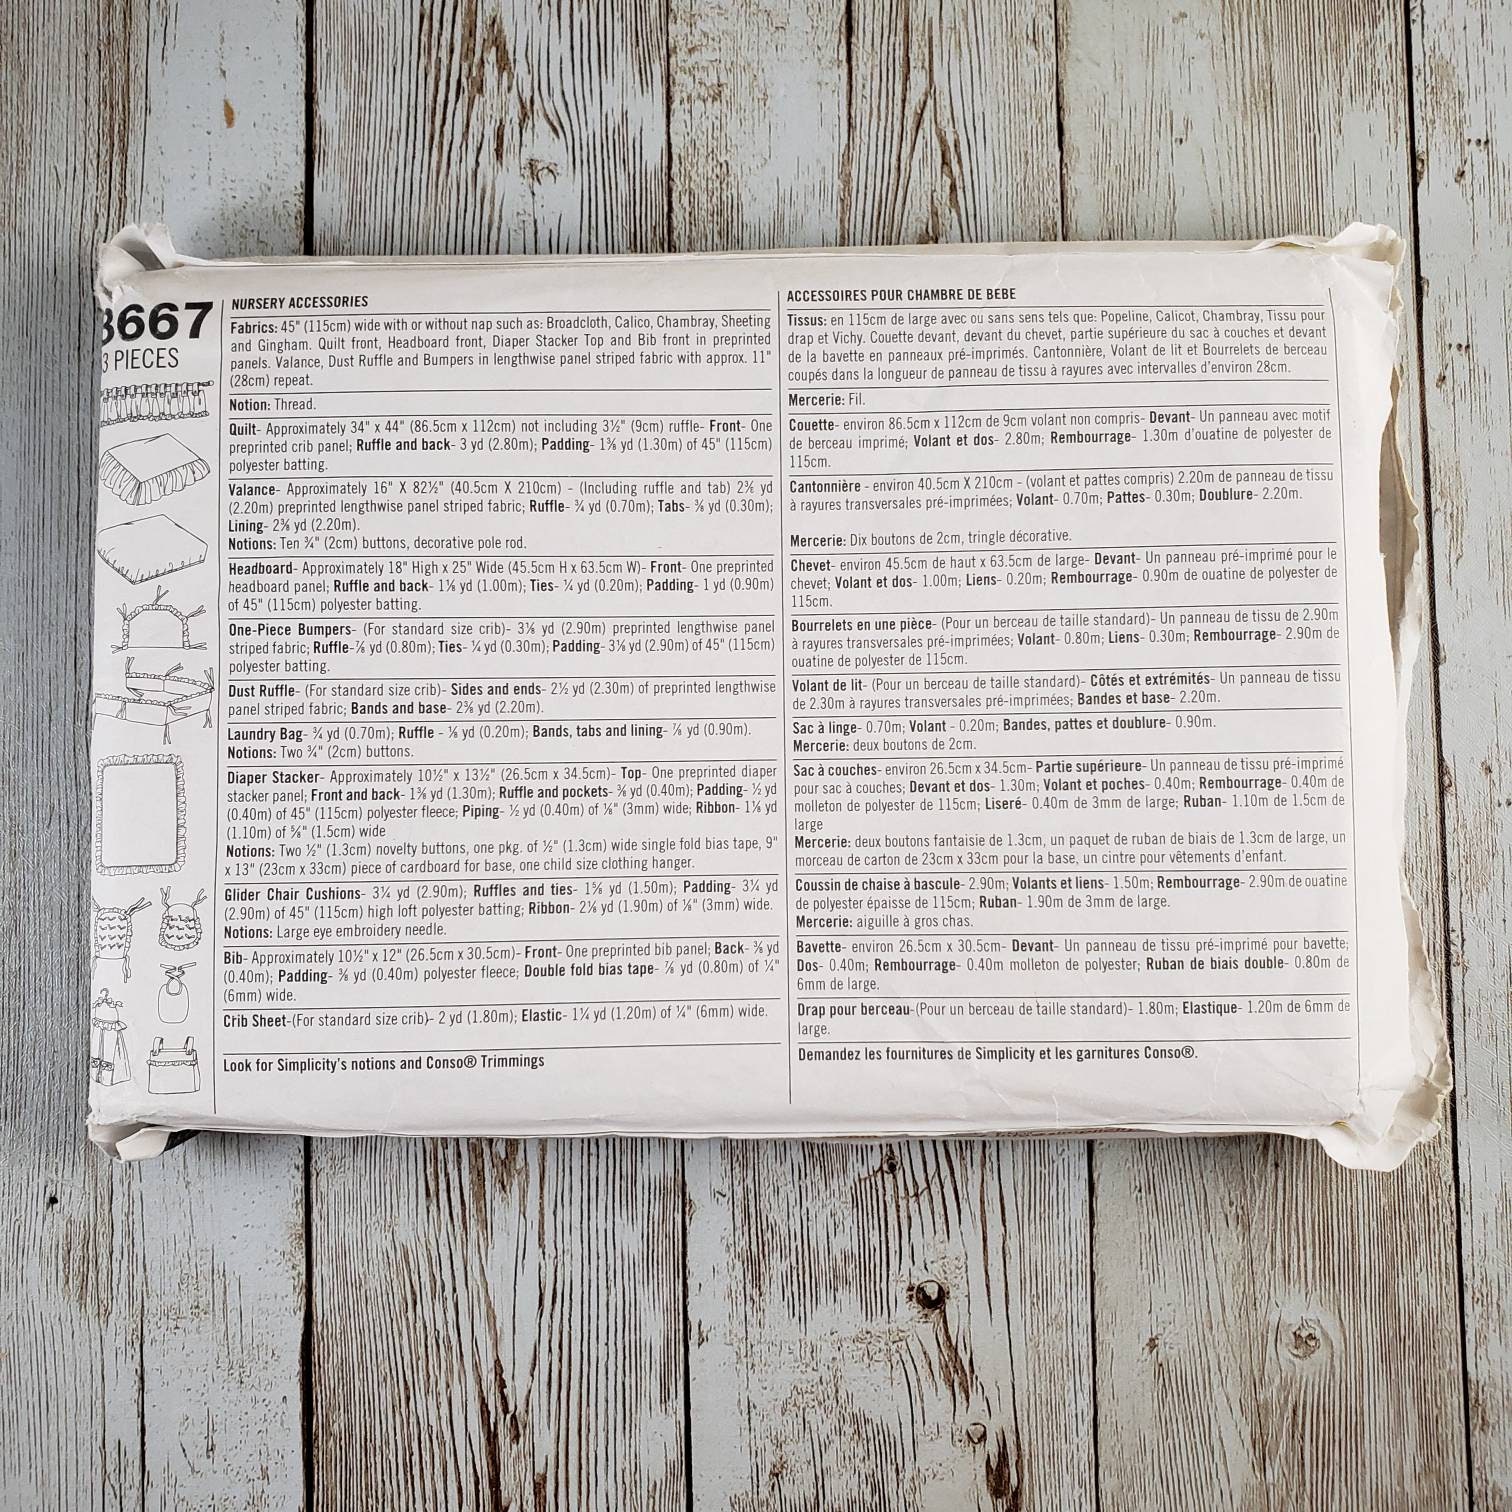 8667
3 PIECES
NURSERY ACCESSORIES
Fabrics: 45" (115cm) wide with or without nap such as: Broadcloth, Calico, Chambray, Sheeting
and Gingham. Quilt front, Headboard front, Diaper Stacker Top and Bib front in preprinted
panels. Valance, Dust Ruffle and Bumpers in lengthwise panel striped fabric with approx. 11"
(28cm) repeat.
Notion: Thread.
Quilt- Approximately 34" x 44" (86.5cm x 112cm) not including 3½" (9cm) ruffle- Front- One
preprinted crib panel; Ruffle and back- 3 yd (2.80m); Padding- 1⅜ yd (1.30m) of 45" (115cm)
polyester batting.
Valance- Approximately 16" X 82½" (40.5cm X 210cm) - (Including ruffle and tab) 2⅜ yd
(2.20m) preprinted lengthwise panel striped fabric; Ruffle- ¾ yd (0.70m); Tabs- ⅜ yd (0.30m);
Lining- 2⅜ yd (2.20m).
Notions: Ten ¾" (2cm) buttons, decorative pole rod.
Headboard- Approximately 18" High x 25" Wide (45.5cm H x 63.5cm W)- Front- One preprinted
headboard panel; Ruffle and back- 1⅛ yd (1.00m); Ties- ¼ yd (0.20m); Padding- 1 yd (0.90m)
of 45" (115cm) polyester batting.
One-Piece Bumpers- (For standard size crib)- 3⅛ yd (2.90m) preprinted lengthwise panel
striped fabric; Ruffle-⅞ yd (0.80m); Ties- ¼ yd (0.30m); Padding- 3⅛ yd (2.90m) of 45" (115cm)
polyester batting.
Dust Ruffle- (For standard size crib)- Sides and ends- 2½ yd (2.30m) of preprinted lengthwise
panel striped fabric; Bands and base- 2⅜ yd (2.20m).
Laundry Bag- ¾ yd (0.70m); Ruffle - ⅛ yd (0.20m); Bands, tabs and lining- ⅞ yd (0.90m).
Notions: Two ¾" (2cm) buttons.
Diaper Stacker- Approximately 10½" x 13½" (26.5cm x 34.5cm)- Top- One preprinted diaper
stacker panel; Front and back- 1⅜ yd (1.30m); Ruffle and pockets- ⅜ yd (0.40m); Padding- ½ yd
(0.40m) of 45" (115cm) polyester fleece; Piping- ½ yd (0.40m) of ⅛" (3mm) wide; Ribbon- 1⅛ yd
(1.10m) of ⅝" (1.5cm) wide
Notions: Two ½" (1.3cm) novelty buttons, one pkg. of ½" (1.3cm) wide single fold bias tape, 9"
x 13" (23cm x 33cm) piece of cardboard for base, one child size clothing hanger.
Glider Chair Cushions- 3¼ yd (2.90m); Ruffles and ties- 1⅝ yd (1.50m); Padding- 3¼ yd
(2.90m) of 45" (115cm) high loft polyester batting; Ribbon- 2⅛ yd (1.90m) of ⅛" (3mm) wide.
Notions: Large eye embroidery needle.
Bib- Approximately 10½" x 12" (26.5cm x 30.5cm)- Front- One preprinted bib panel; Back- ⅜ yd
(0.40m); Padding- ⅜ yd (0.40m) polyester fleece; Double fold bias tape- ⅞ yd (0.80m) of ¼"
(6mm) wide.
Crib Sheet-(For standard size crib)- 2 yd (1.80m); Elastic- 1¼ yd (1.20m) of ¼" (6mm) wide.
Look for Simplicity's notions and Conso® Trimmings
ACCESSOIRES POUR CHAMBRE DE BEBE
Tissus: en 115cm de large avec ou sans sens tels que: Popeline, Calicot, Chambray, Tissu pour
drap et Vichy. Couette devant, devant du chevet, partie supérieure du sac à couches et devant
de la bavette en panneaux pré-imprimés. Cantonnière, Volant de lit et Bourrelets de berceau
coupés dans la longueur de panneau de tissu à rayures avec intervalles d'environ 28cm.
Mercerie: Fil.
Couette- environ 86.5cm x 112cm de 9cm volant non compris- Devant- Un panneau avec motif
de berceau imprimé; Volant et dos- 2.80m; Rembourrage- 1.30m d'ouatine de polyester de
115cm.
Cantonnière - environ 40.5cm X 210cm - (volant et pattes compris) 2.20m de panneau de tissu
à rayures transversales pré-imprimées; Volant- 0.70m; Pattes- 0.30m; Doublure- 2.20m.
Mercerie: Dix boutons de 2cm, tringle décorative.
Chevet- environ 45.5cm de haut x 63.5cm de large- Devant- Un panneau pré-imprimé pour le
chevet; Volant et dos- 1.00m; Liens- 0.20m; Rembourrage- 0.90m de ouatine de polyester de
115cm.
Bourrelets en une pièce- (Pour un berceau de taille standard)- Un panneau de tissu de 2.90m
à rayures transversales pré-imprimées; Volant- 0.80m; Liens- 0.30m; Rembourrage- 2.90m de
ouatine de polyester de 115cm.
Volant de lit- (Pour un berceau de taille standard)- Côtés et extrémités- Un panneau de tissu
de 2.30m à rayures transversales pré-imprimées; Bandes et base- 2.20m.
Sac à linge- 0.70m; Volant - 0.20m; Bandes, pattes et doublure- 0.90m.
Mercerie: deux boutons de 2cm.
Sac à couches- environ 26.5cm x 34.5cm- Partie supérieure- Un panneau de tissu pré-imprimé
pour sac à couches; Devant et dos- 1.30m; Volant et poches- 0.40m; Rembourrage- 0.40m de
molleton de polyester de 115cm; Liseré- 0.40m de 3mm de large; Ruban- 1.10m de 1.5cm de
large
Mercerie: deux boutons fantaisie de 1.3cm, un paquet de ruban de biais de 1.3cm de large, un
morceau de carton de 23cm x 33cm pour la base, un cintre pour vêtements d'enfant.
Coussin de chaise à bascule- 2.90m; Volants et liens- 1.50m; Rembourrage- 2.90m de ouatine
de polyester épaisse de 115cm; Ruban- 1.90m de 3mm de large.
Mercerie: aiguille à gros chas.
Bavette- environ 26.5cm x 30.5cm- Devant- Un panneau de tissu pré-imprimé pour bavette;
Dos- 0.40m; Rembourrage- 0.40m molleton de polyester; Ruban de biais double- 0.80m de
6mm de large.
Drap pour berceau-(Pour un berceau de taille standard)- 1.80m; Elastique- 1.20m de 6mm de
large.
Demandez les fournitures de Simplicity et les garnitures Conso®.